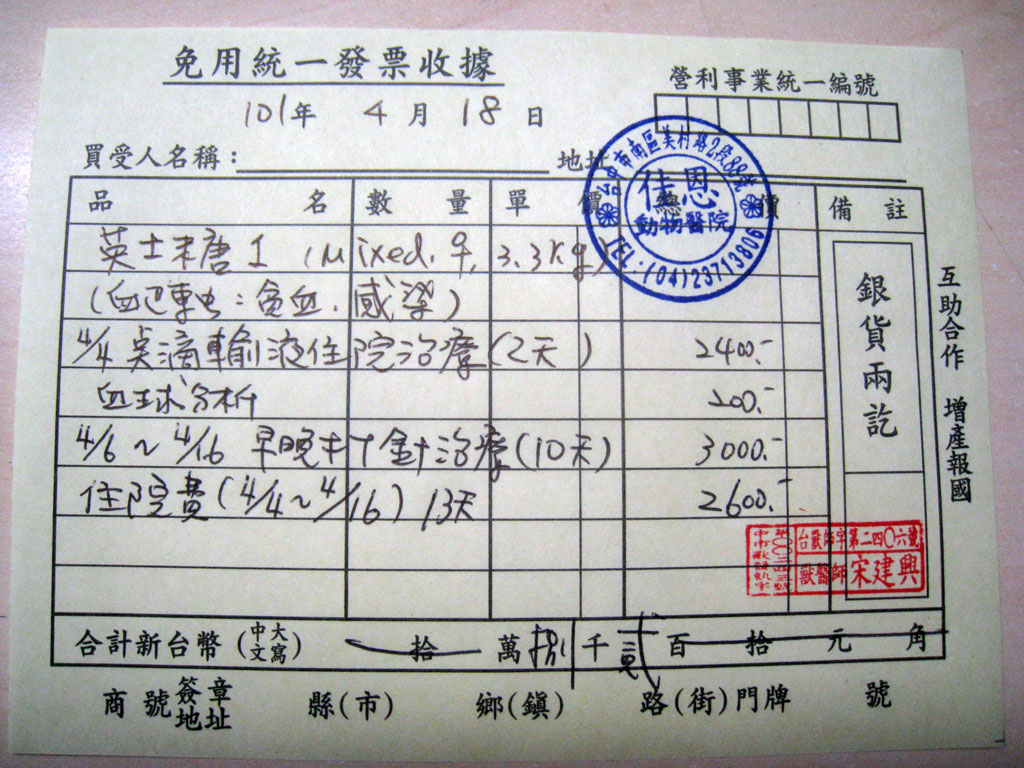 免用統一發票收據
營利事業統一編號
101年 4月 18日
買受人名稱： 地址
台中市南區美村路2段88號
佳恩
動物醫院
TEL:(04)23713806
品名 數量 單價 總價 備註
英士 唐I (Mixed. ♀, 3.3kg)
(血巴東虫:貧血.感染)
4/4 吳滴輸液住院治療(2天) 2400.-
血球分析 200.-
4/6~4/16 早晚打針治療(10天) 3000.-
住院費(4/4~4/16) 13天 2600.-
銀貨兩訖
互助合作 增產報國
台獸師字第二四〇六號
獸醫師 宋建興
合計新台幣(中文大寫) 拾 萬 捌 千 貳 百 拾 元 角
商號簽章地址 縣(市) 鄉(鎮) 路(街)門牌 號